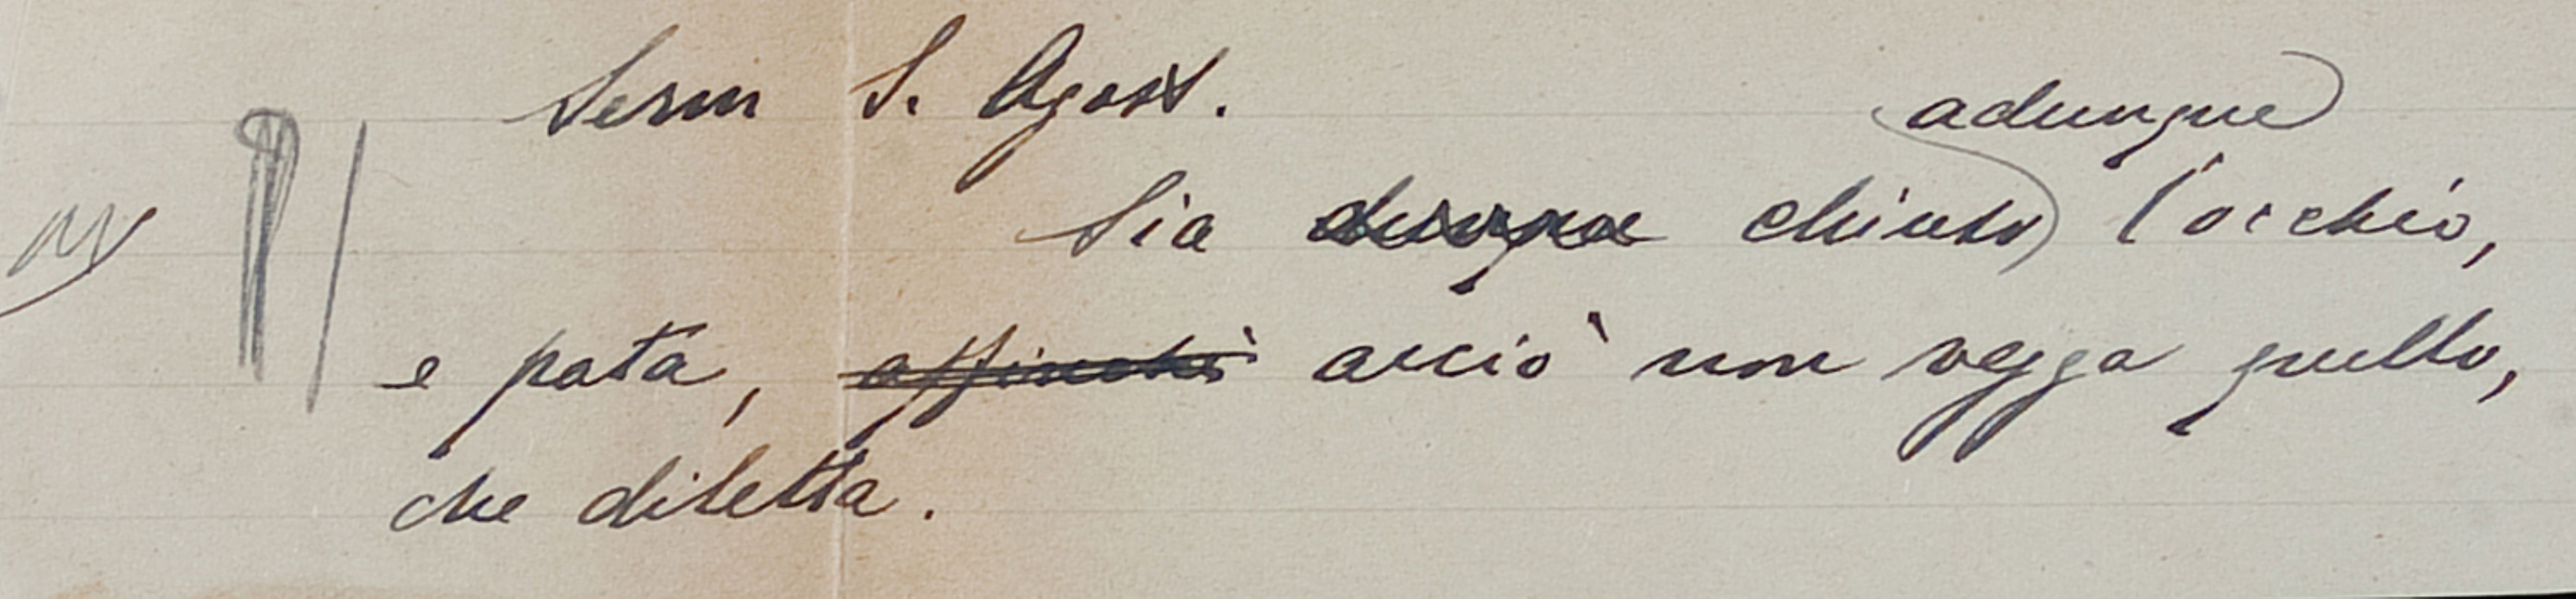 Serm S. Agost.
adunque
Sia dunque chiuso l'occhio,
e pata, affinché acciò non vegga quello,
che diletta.